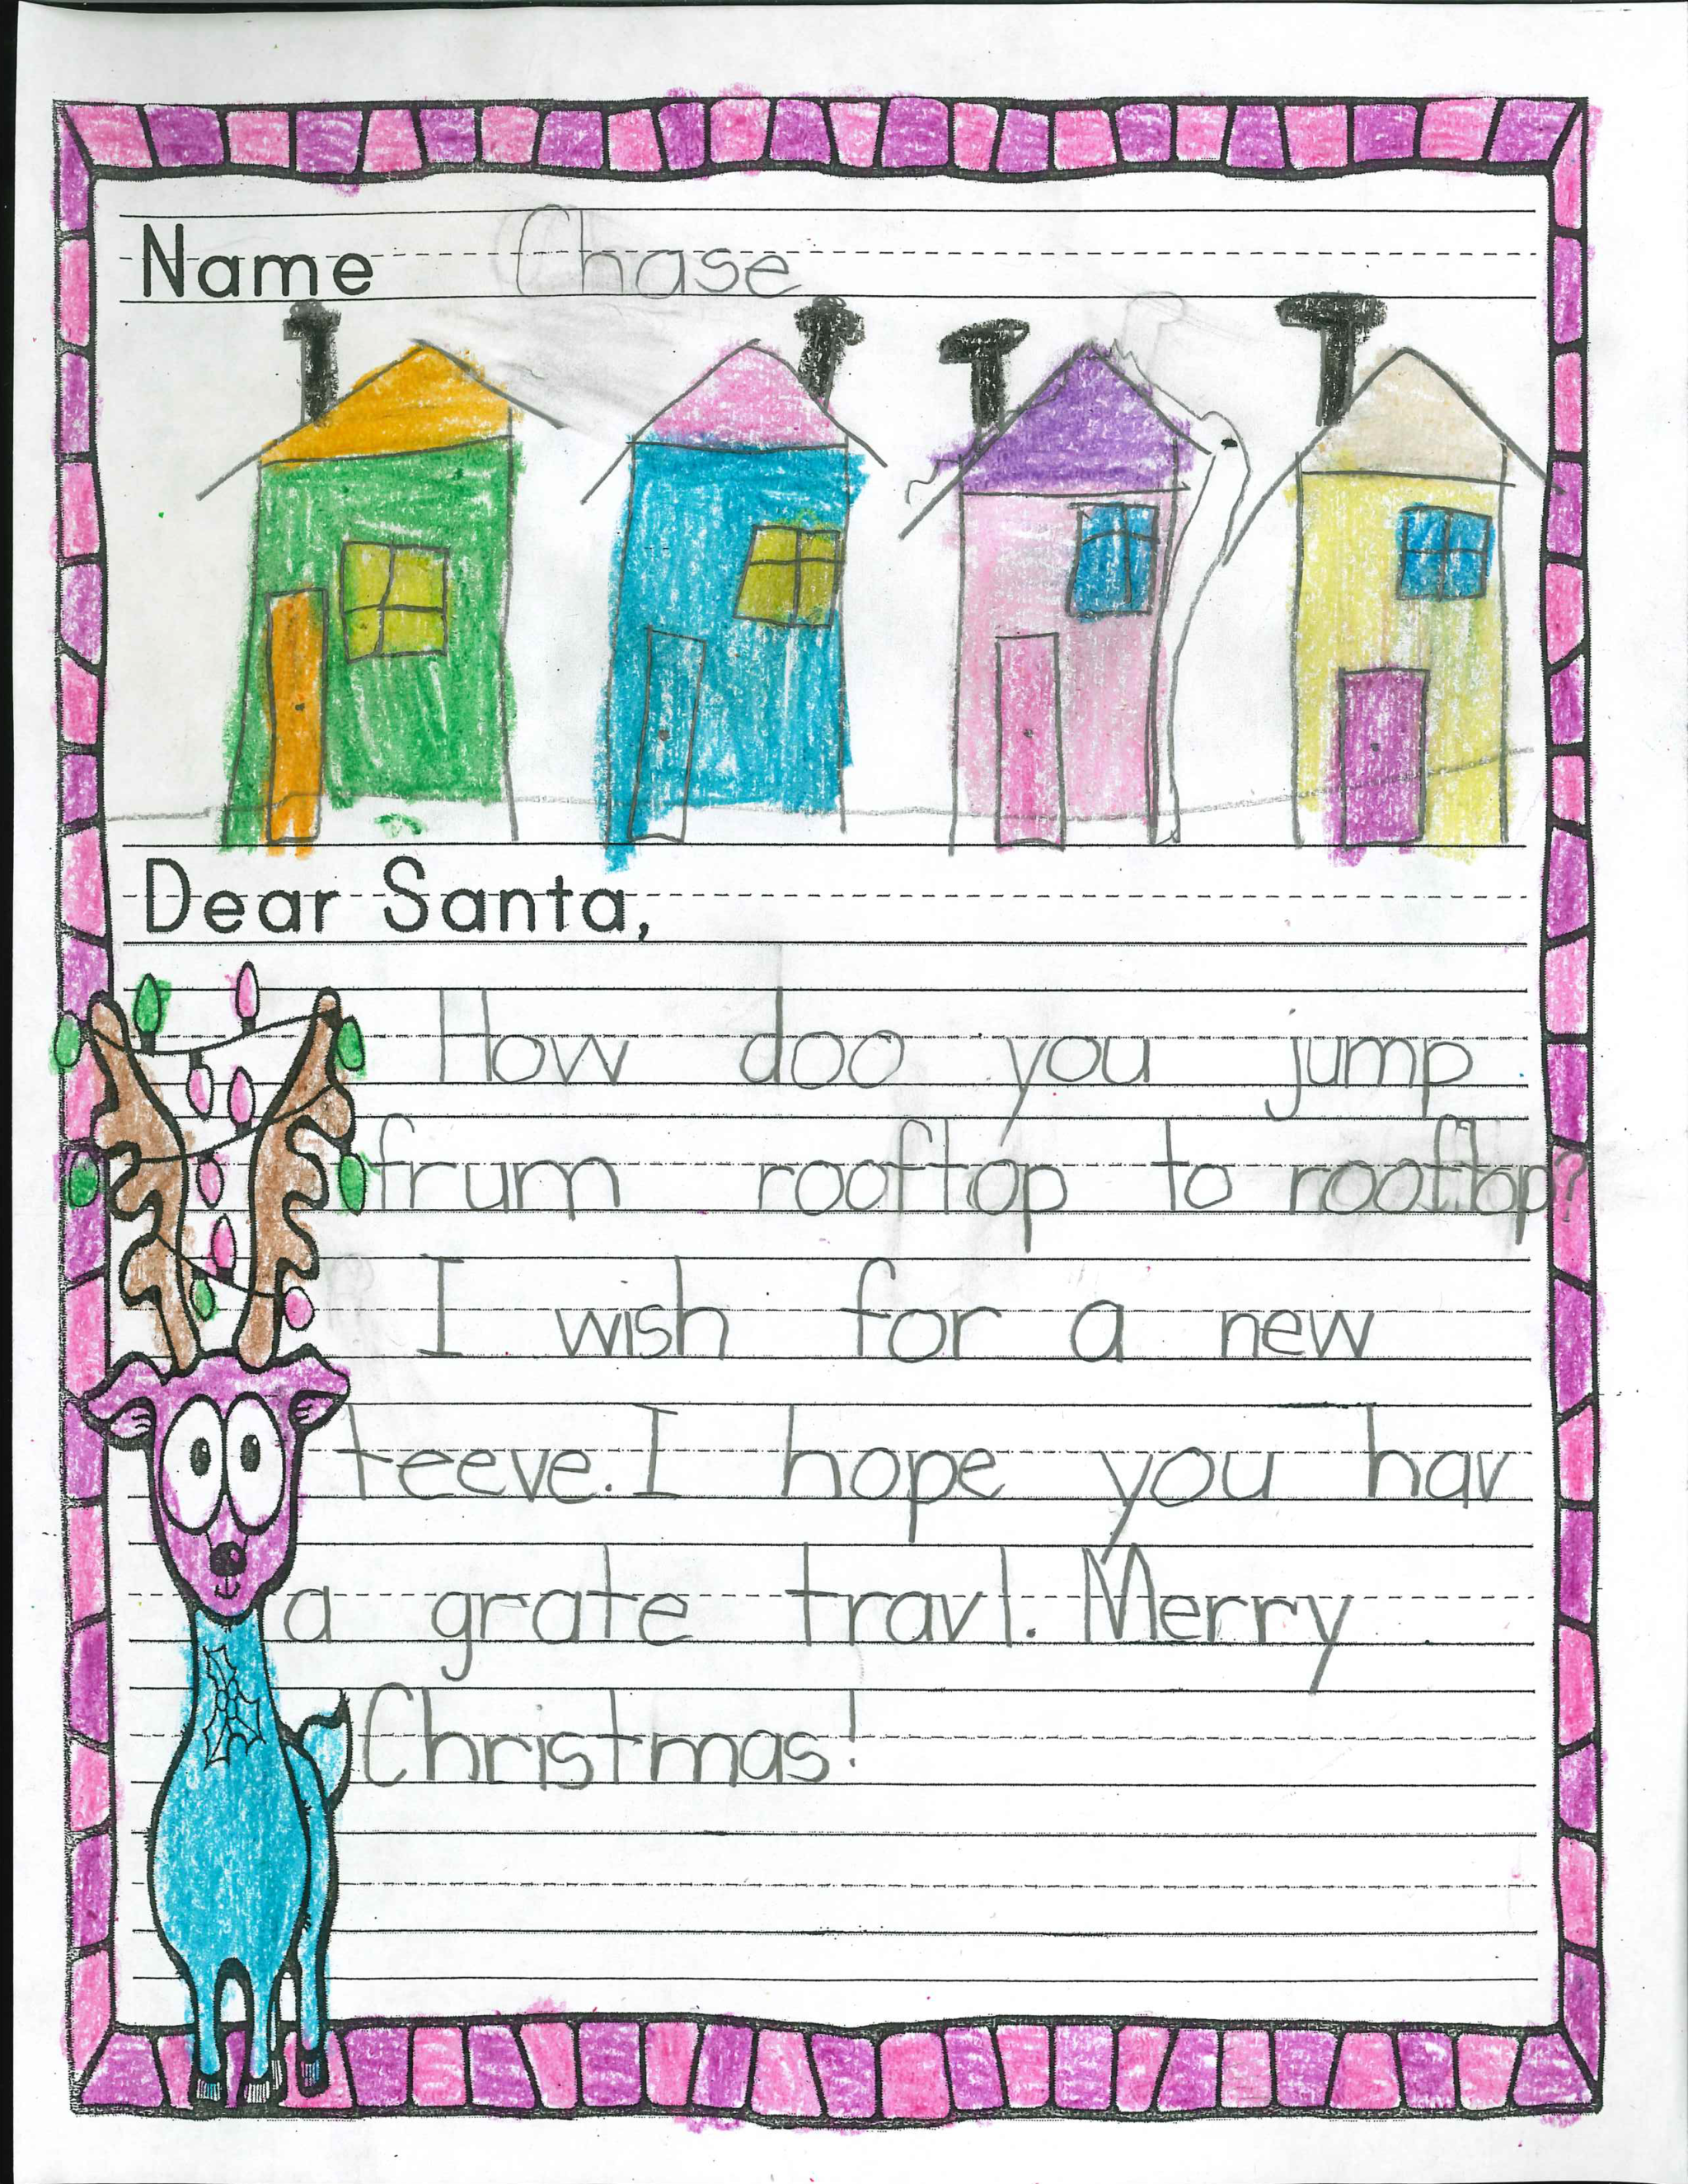 Name Chase
Dear Santa,
How doo you jump
frum rooftop to rooftop?
I wish for a new
teeve. I hope you hav
a grate travl. Merry
Christmas!